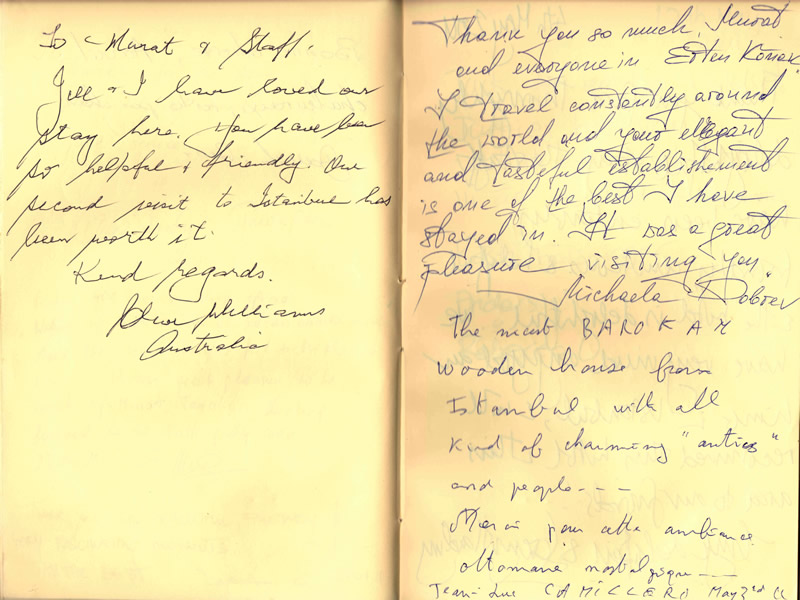 To Murat & Staff.
Jill & I have loved our
stay here. You have been
so helpful & friendly. Our
second visit to Istanbul has
been worth it.
Kind regards.
Williams
Australia
Thank you so much, Murat
and everyone in Erten Konak
I travel constantly around
the world and your ellegant
and tasteful establishement
is one of the best I have
stayed in. It was a great
pleasure visiting you
Michaela Dobrev
The most BAROKAM
wooden house from
Istambul with all
kind of charming "antics"
and people ---
Merci pour cette ambiance
ottomane nostalgique ---
Jean-Luc CAMILLERI May 2nd